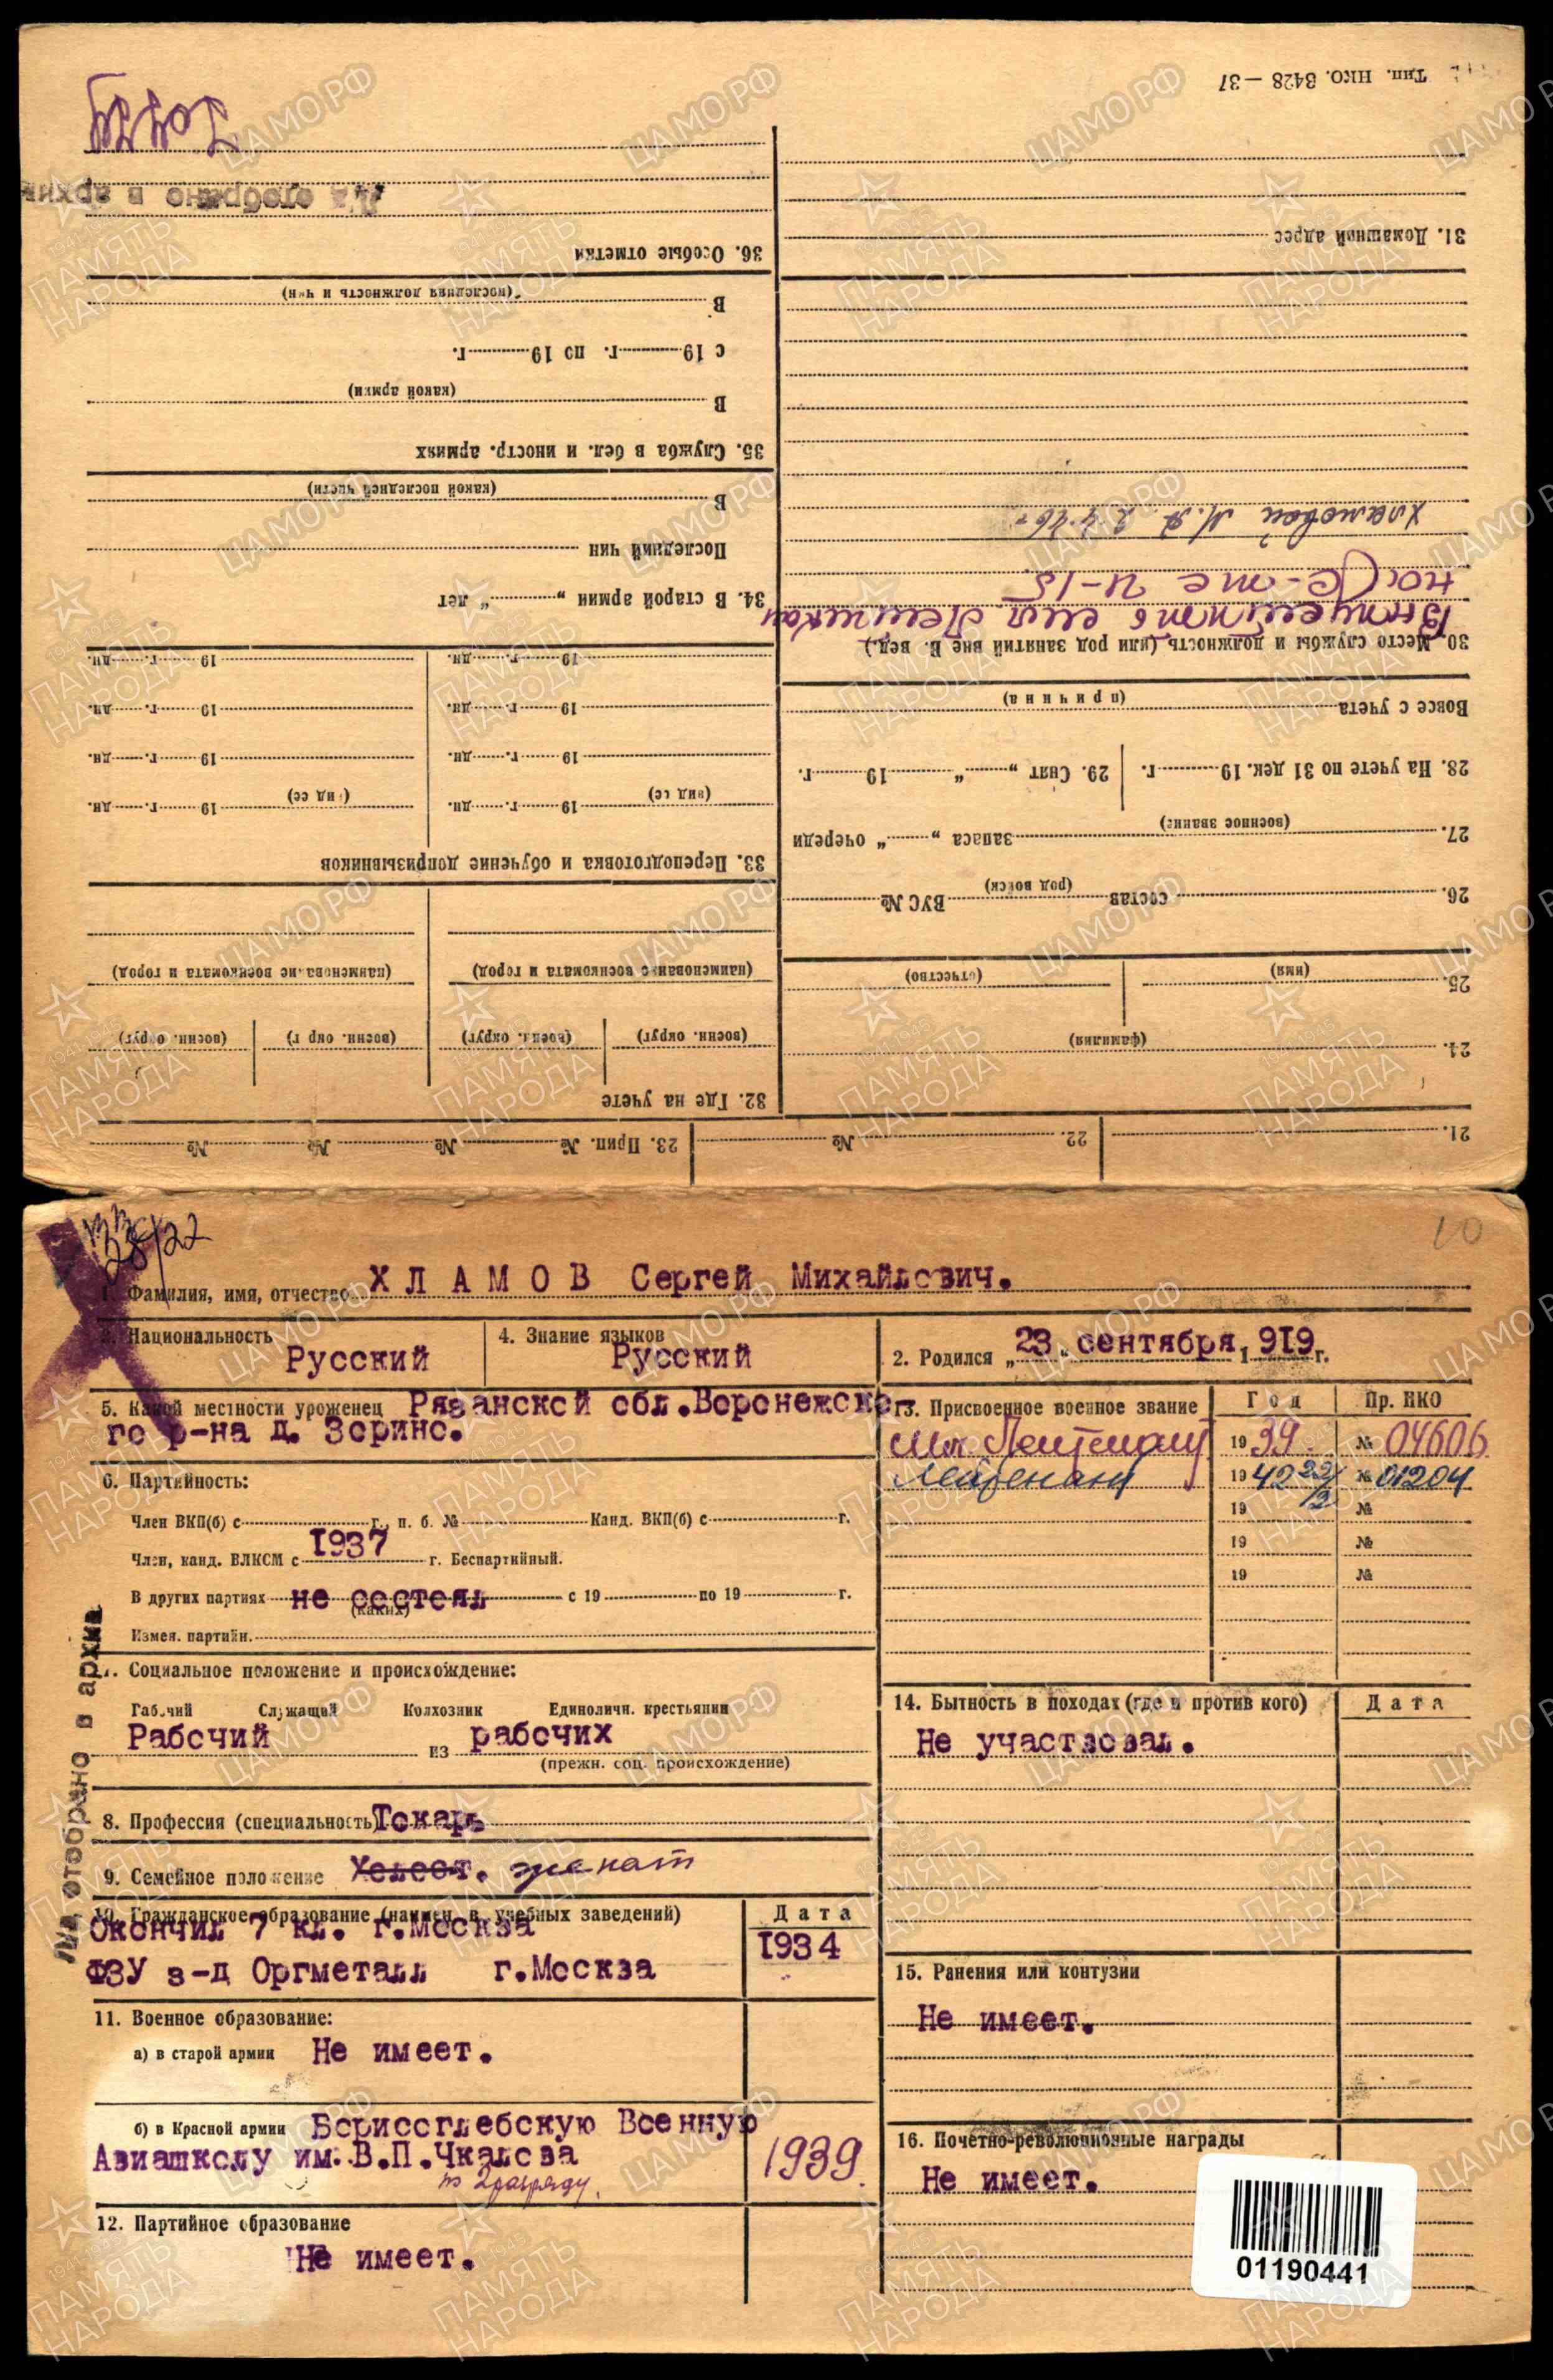 Тип. НКО. 3428 — 37
31. Домашний адрес
30. Место службы и должность (или род занятий вне В. вед.)
на с-те И-15
Хламовой М.
Вовсе с учета
(причина)
28. На учете по 31 дек. 19 г.
29. Снят „ “ 19 г.
27. запаса „ “ очереди
(военное звание)
26. состав ВУС №
(род войск)
25.
(имя) (отчество)
24.
(фамилия)
21. 22. № 23. Прип. № № № №
36. Особые отметки
Л/д отобрано в архив
В
(последняя должность и чин)
с 19 г. по 19 г.
В
(какой армии)
35. Служба в бел. и иностр. армиях
В
(какой последней части)
Последний чин
34. В старой армии „ “ лет
19 г. дн. 19 г. дн.
19 г. дн. 19 г. дн.
19 г. дн. 19 г. дн.
19 г. дн. 19 г. дн.
33. Переподготовка и обучение допризывников
(наименование военкомата и город) (наименование военкомата и город)
(военн. округ) (военн. округ) (военн. округ) (военн. округ)
32. Где на учете
28/22
10
1. Фамилия, имя, отчество ХЛАМОВ Сергей Михайлович.
3. Национальность Русский
4. Знание языков Русский
2. Родился „23“ сентября 1919 г.
5. Какой местности уроженец Рязанской обл. Воронежско
го р-на д. Зорино.
6. Партийность:
Член ВКП(б) с г., п. б. № Канд. ВКП(б) с г.
Член, канд. ВЛКСМ с 1937 г. Беспартийный.
В других партиях не состоял с 19 по 19 г.
(каких)
Измен. партийн.
7. Социальное положение и происхождение:
Рабочий Служащий Колхозник Единоличн. крестьянин
Рабочий из рабочих
(прежн. соц. происхождение)
8. Профессия (специальность) Токарь
9. Семейное положение Холост. женат
10. Гражданское образование (наимен. в. учебных заведений) Дата
Окончил 7 кл. г.Москва
ФЗУ з-д Оргметалл г.Москва 1934
11. Военное образование:
а) в старой армии Не имеет.
б) в Красной армии Борисоглебскую Военную
Авиашколу им. В.П.Чкалова 1939.
по 2 разряду.
12. Партийное образование
Не имеет.
13. Присвоенное военное звание Год Пр. НКО
Мл. Лейтенант 1939. № 04606
Лейтенант 1942 22/2 № 01204
19 №
19 №
19 №
14. Бытность в походах (где и против кого) Дата
Не участвовал.
15. Ранения или контузии
Не имеет.
16. Почетно-революционные награды
Не имеет.
01190441
Л/д отобрано в архив
ЦАМО.РФ
ПАМЯТЬ
НАРОДА